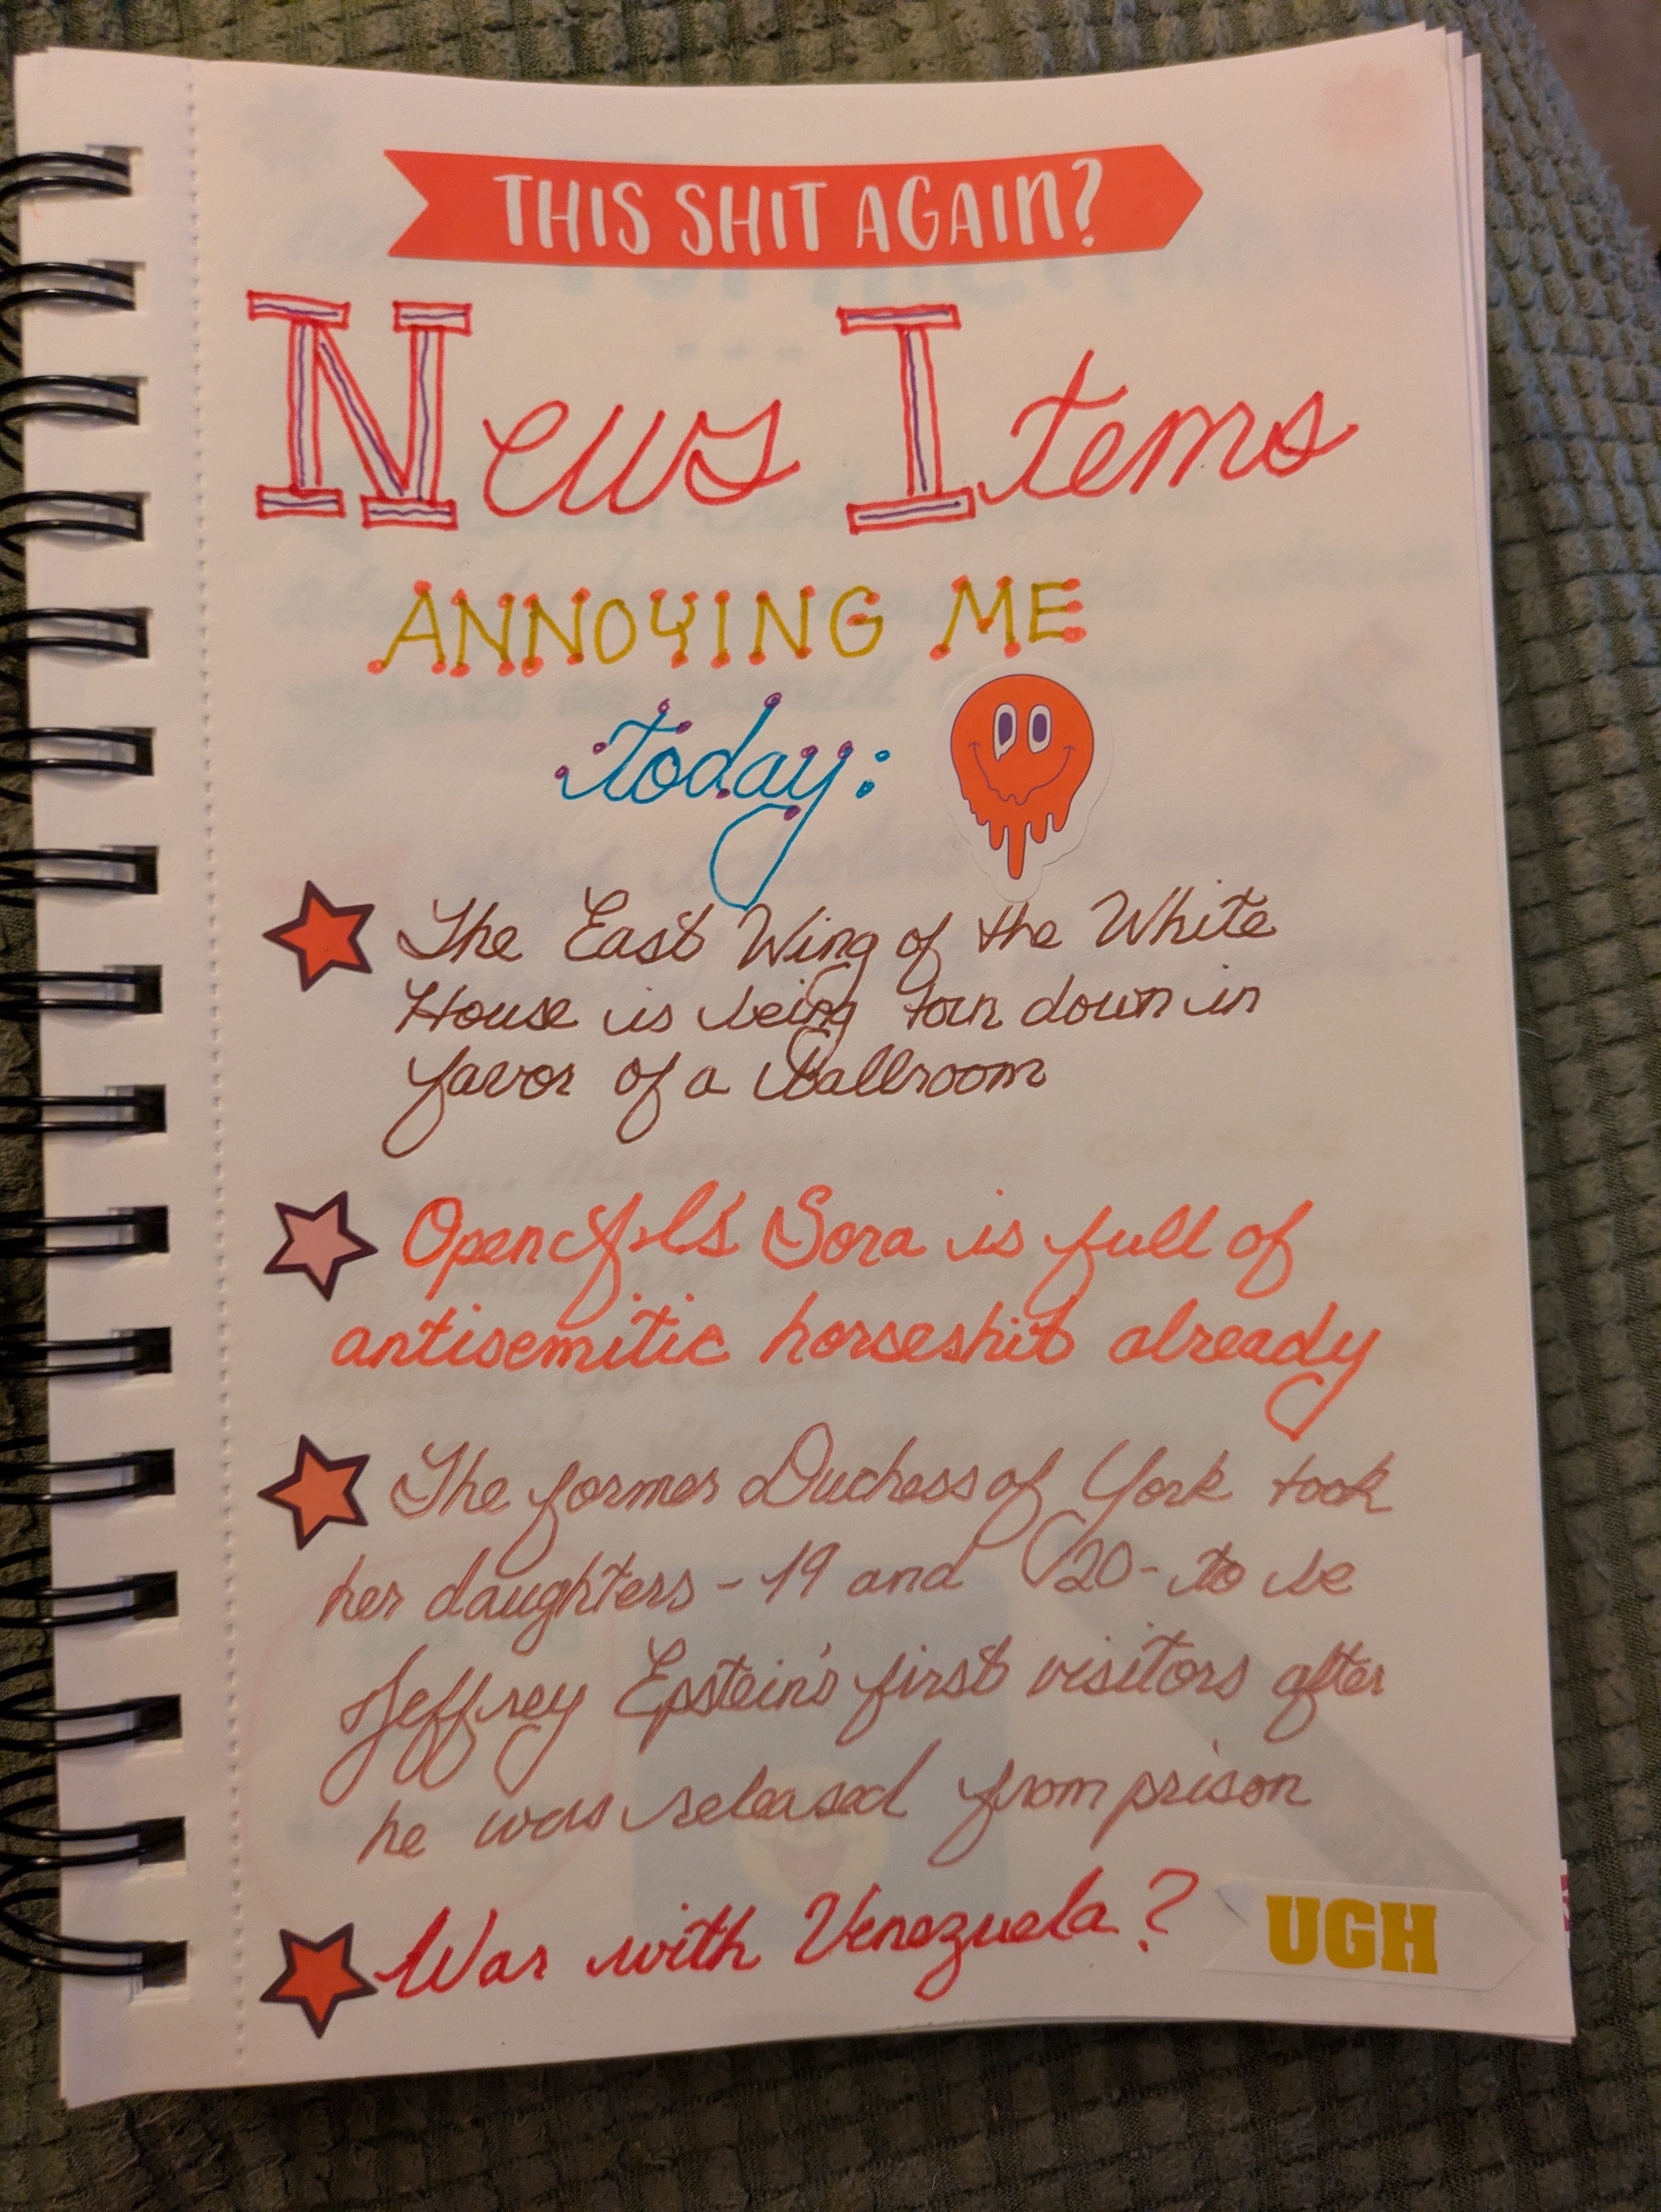 THIS SHIT AGAIN?
News Items
ANNOYING ME
today:
The East Wing of the White
House is being torn down in
favor of a Ballroom
OpenAI's Sora is full of
antisemitic horseshit already
The former Duchess of York took
her daughters - 19 and 20 - to be
Jeffrey Epstein's first visitors after
he was released from prison
War with Venezuela?
UGH